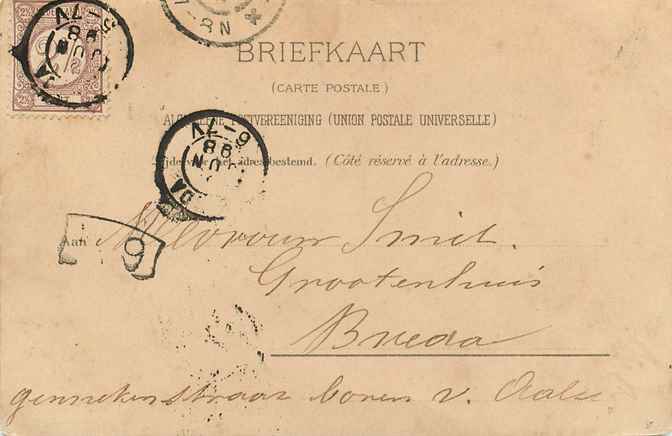 BRIEFKAART
(CARTE POSTALE)
ALGEMEENE POSTVEREENIGING (UNION POSTALE UNIVERSELLE)
Zijde voor het adres bestemd. (Côté réservé à l'adresse.)
Aan Mevrouw Smit.
Grootenhuis
Breda
boven v.
7-8N
98
98
6